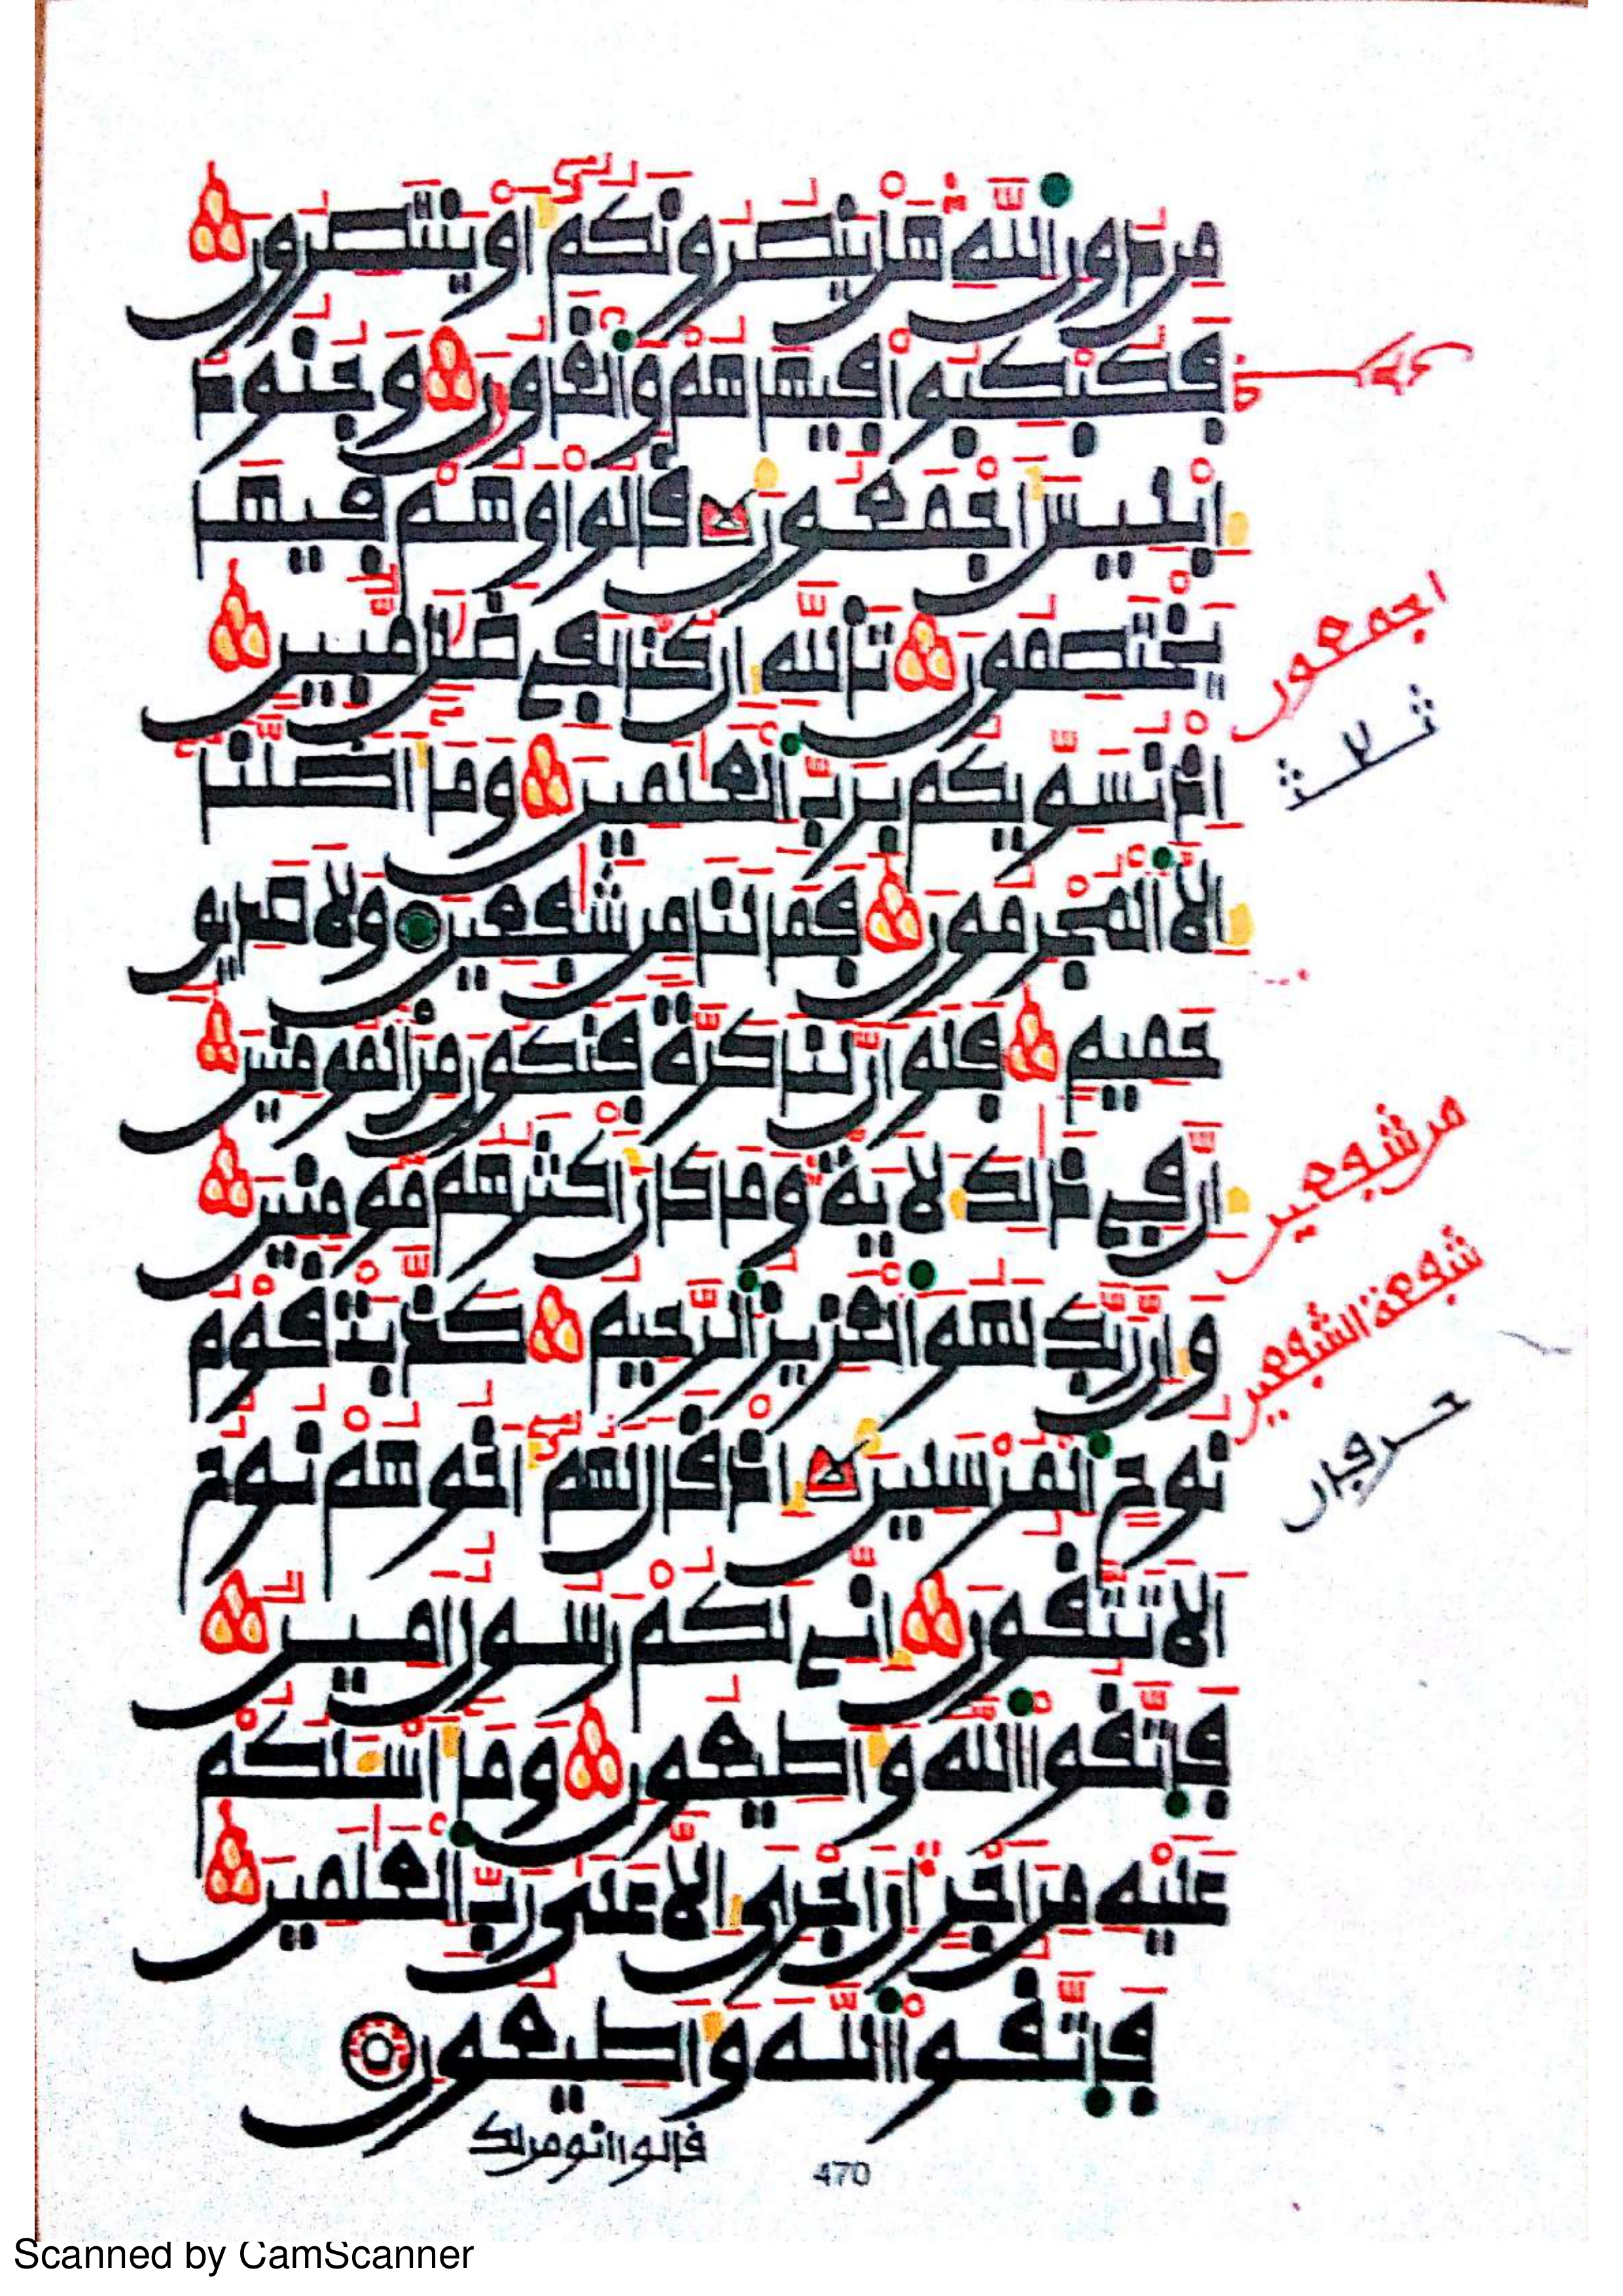 مِن دُونِ اِ۬للَّهِ هَلْ يَنصُرُونَكُمُۥٓ أَوْ يَنتَصِرُونَ
فَكُبْكِبُوا۟ فِيهَا هُمْ وَالْغَاوُۥنَ وَجُنُودُ
إِبْلِيسَ أَجْمَعُونَ قَالُوا۟ وَهُمْ فِيهَا
يَخْتَصِمُونَ تَاللَّهِ إِن كُنَّا لَفِى ضَلَٰلٍ مُّبِينٍ
اِذْ نُسَوِّيكُم بِرَبِّ اِ۬لْعَٰلَمِينَ وَمَآ أَضَلَّنَآ
إِلَّا اَ۬لْمُجْرِمُونَ فَمَا لَنَا مِن شَٰفِعِينَ وَلَا صَدِيقٍ
حَمِيمٍ فَلَوْ أَنَّ لَنَا كَرَّةً فَنَكُونَ مِنَ اَ۬لْمُومِنِينَ
إِنَّ فِى ذَٰلِكَ لَأَيَةً وَمَا كَانَ أَكْثَرُهُم مُّومِنِينَ
وَإِنَّ رَبَّكَ لَهُوَ اَ۬لْعَزِيزُ اُ۬لرَّحِيمُ كَذَّبَتْ قَوْمُ
نُوحٍ اِ۬لْمُرْسَلِينَ إِذْ قَالَ لَهُمُۥٓ أَخُوهُمْ نُوحٌ
اَلَا تَتَّقُونَ إِنِّى لَكُمْ رَسُولٌ اَمِينٌ
فَاتَّقُوا۟ اُ۬للَّهَ وَأَطِيعُونِ وَمَآ أَسْـَٔلُكُمْ
عَلَيْهِ مِنَ اَجْرٍ اِنَ اَجْرِىَ إِلَّا عَلَىٰ رَبِّ اِ۬لْعَٰلَمِينَ
فَاتَّقُوا۟ اُ۬للَّهَ وَأَطِيعُونِ
قالوا انومن لك
470
اجمعون
ثلاث
من شفعين
شفعة الشفعين
حرفان
Scanned by CamScanner